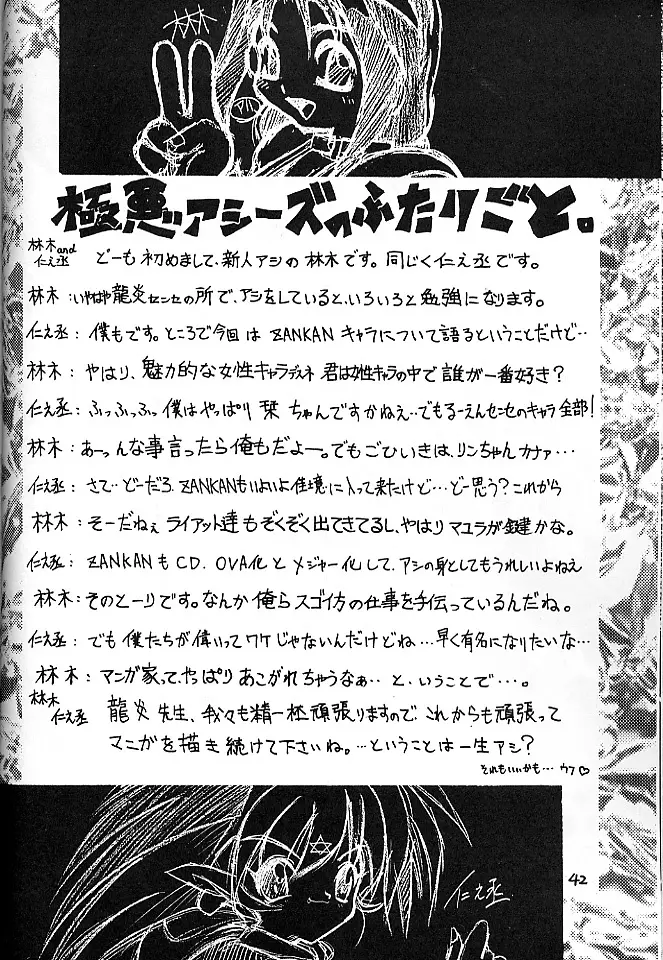 林
極悪アシーズのふたりごと。
林木and仁え丞 どーも初めまして、新人アシの林木です。同じく仁え丞です。
林木:いやはや龍炎センセの所で、アシをしていると、いろいろと勉強になります。
仁え丞:僕もです。ところで今回は ZANKAN キャラについて語るということだけど‥
林木:やはり、魅力的な女性キャラデスネ 君は女性キャラの中で誰が一番好き?
仁え丞:ふっふっふっ僕はやっぱり 栞 ちゃんですかねえ‥でもるーえんセンセのキャラ全部!
林木:あーっんな事言ったら俺もだよー。でもごひいきは、リンちゃんカナァ…
仁え丞:さて‥どーだろ、ZANKANもいよいよ佳境に入って来たけど…どー思う?これから
林木:そーだねぇ ライアット達もぞくぞく出てきてるし、やはり マユラが鍵かな。
仁え丞:ZANKANも CD、OVA化と メジャー化して、アシの身としてもうれしいよねえ
林木:そのとーりです。なんか俺ら スゴイ方の仕事を手伝っているんだね。
仁え丞:でも 僕たちが 偉いって ワケじゃないんだけどね…早く有名になりたいな…
林木:マンガ家って、やっぱり あこがれちゃうなぁ‥ と、いうことで…。
林木 仁え丞 龍炎 先生、我々も精一杯頑張りますので、これからも頑張って
マンガを描き続けて下さいね。…ということは一生アシ?
それもいいかも… ウフ♡
42
仁え丞